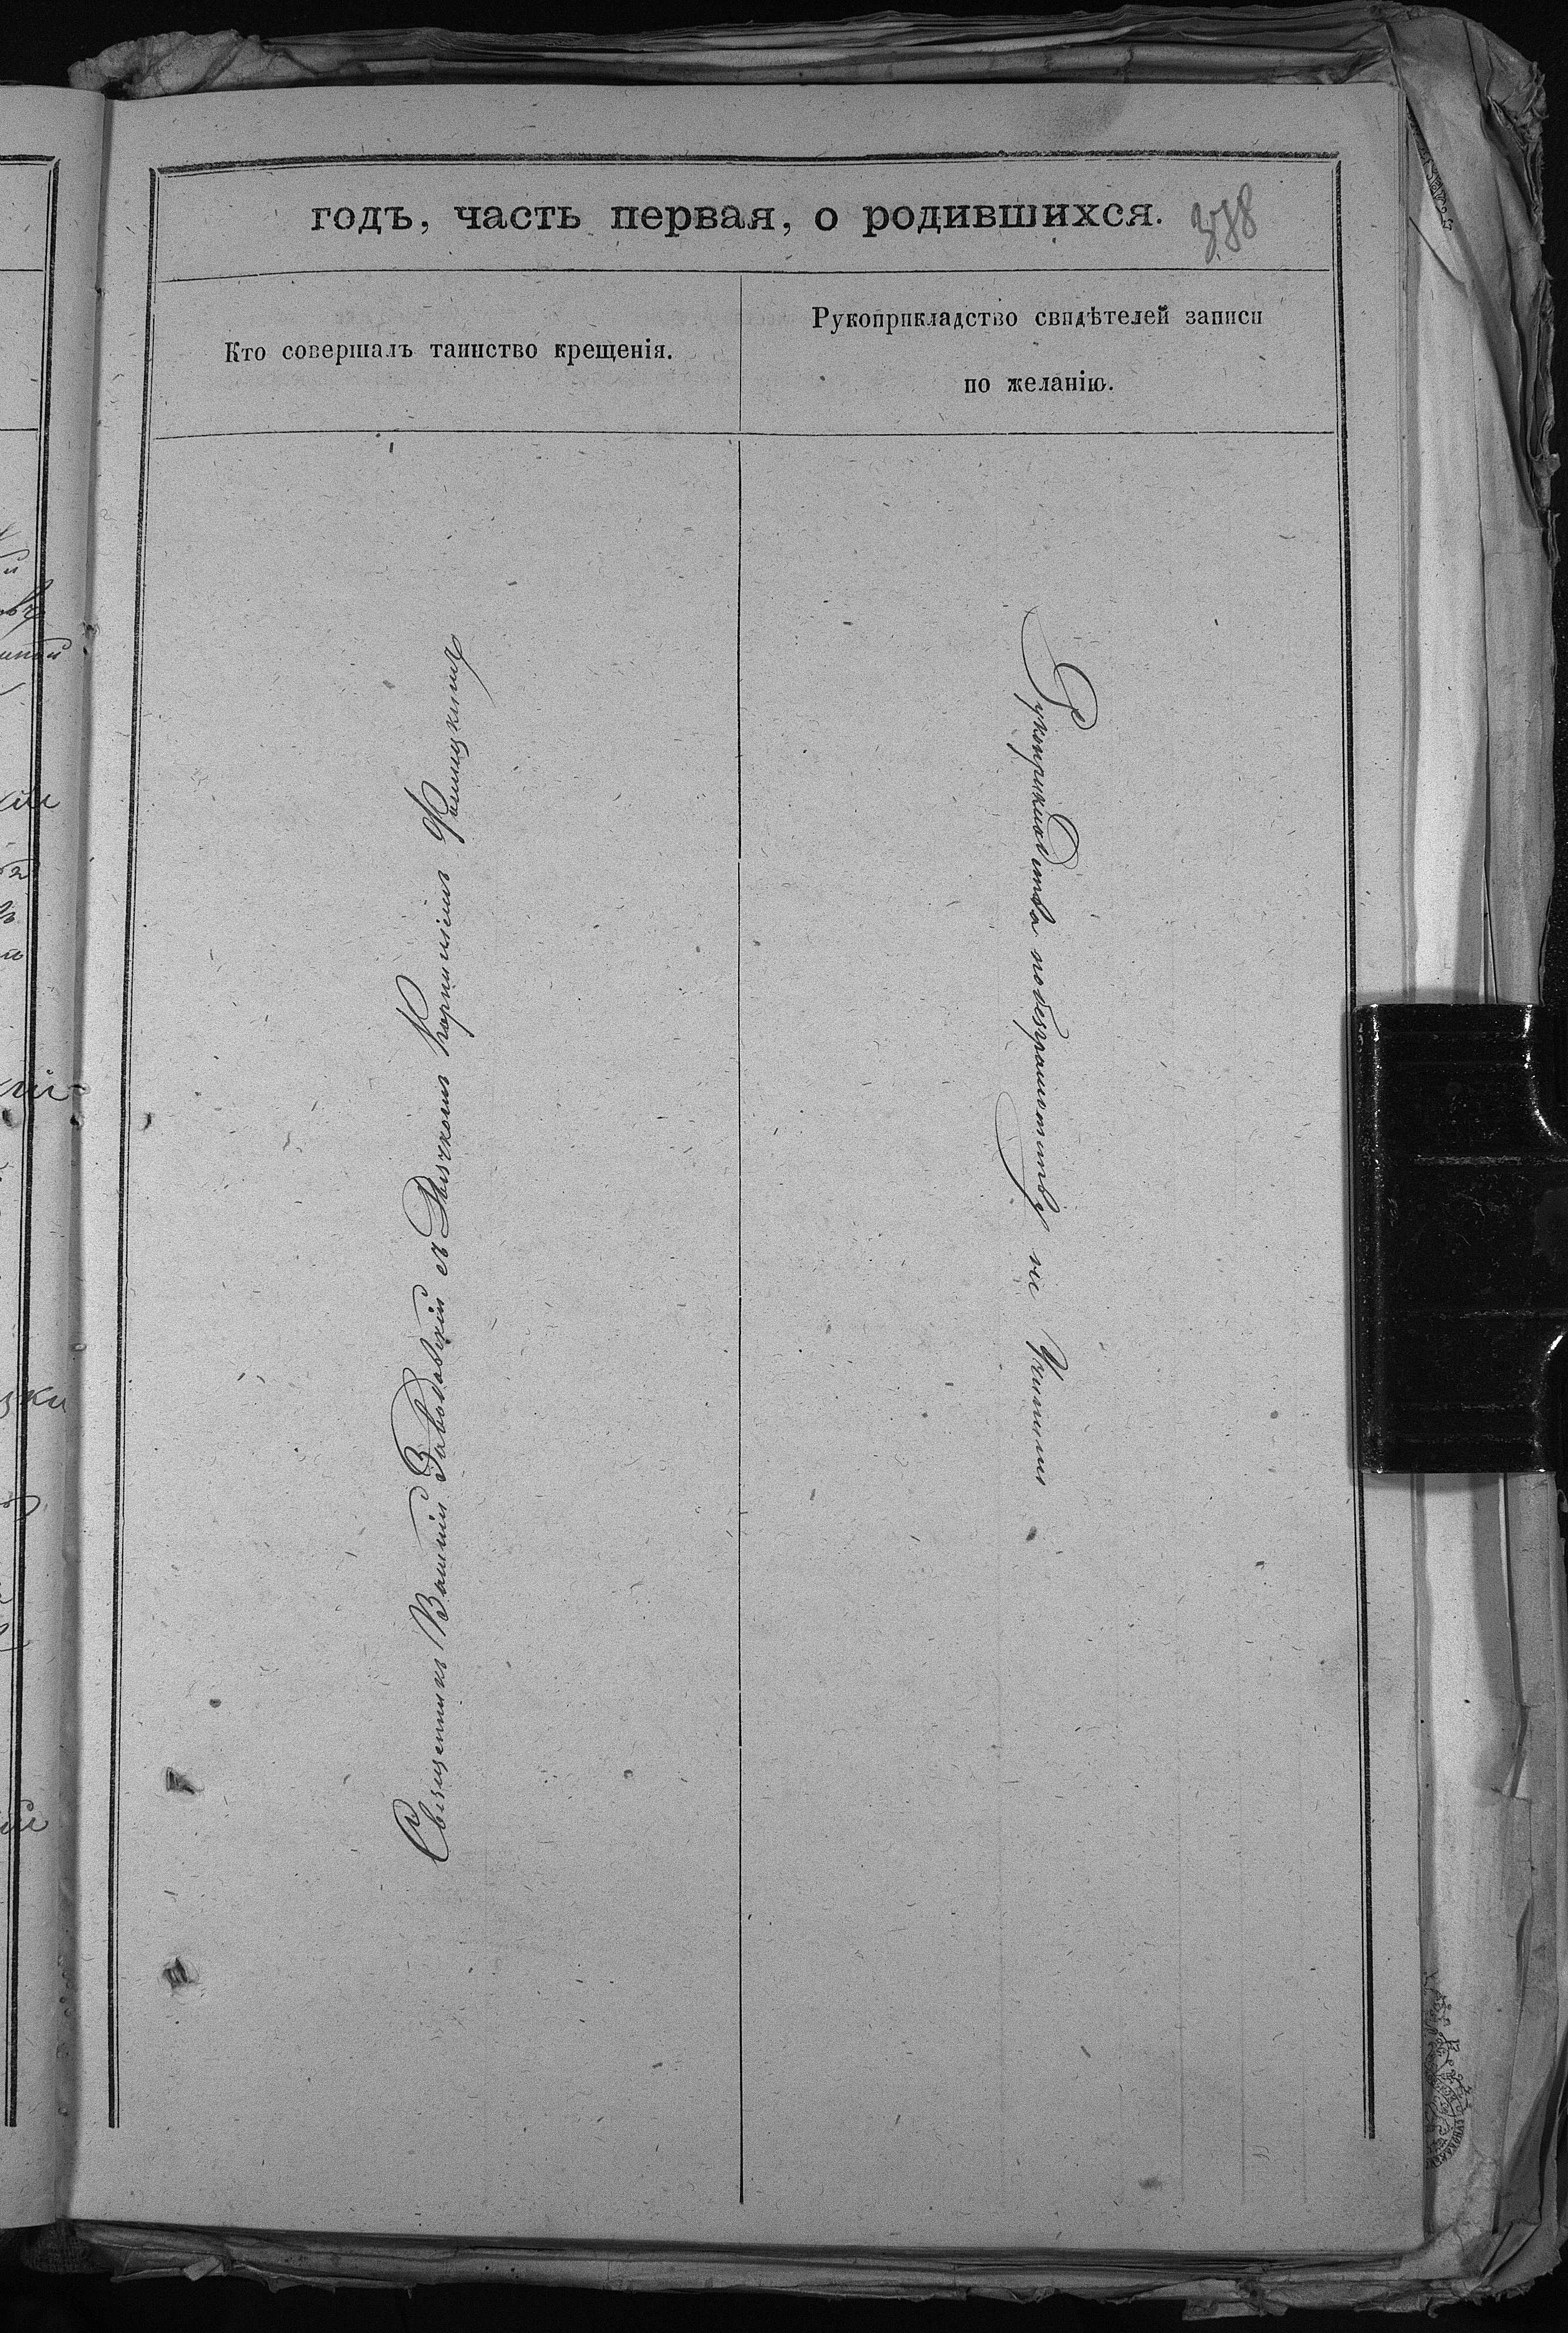 годъ, часть первая, о родившихся. 378
Кто совершалъ таинство крещенія.
Рукоприкладство свидѣтелей записи
по желанію.
Священникъ Василій Заводовскій съ Дьячкомъ Корниліемъ
Рукоприкладства по безграмотству не учинили